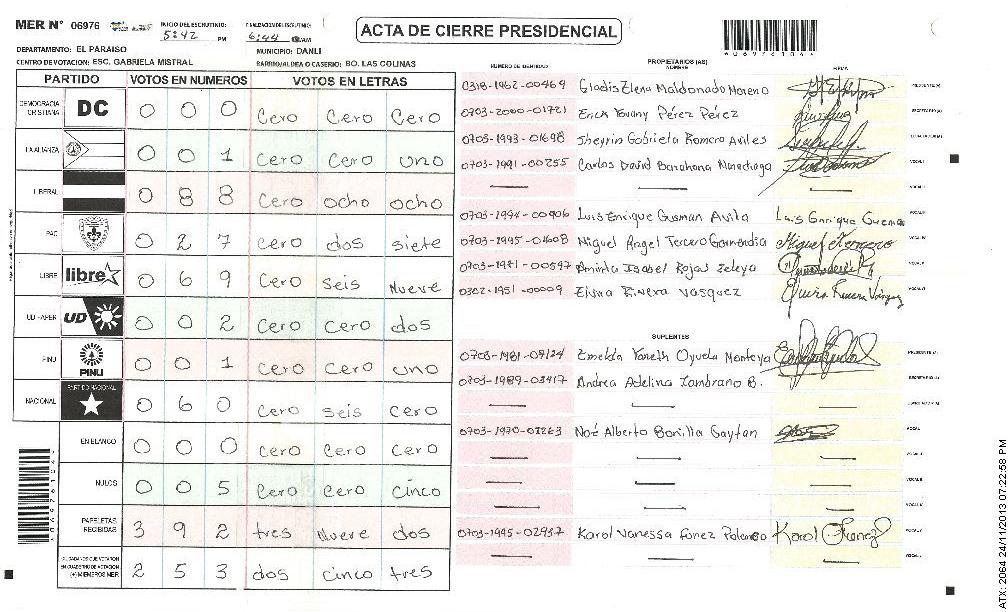 MER N° 06976 INICIO DEL ESCRUTINIO: 5:42 PM FINALIZACION DEL ESCRUTINIO: 6:44 AM
ACTA DE CIERRE PRESIDENCIAL
DEPARTAMENTO: EL PARAISO MUNICIPIO: DANLI
CENTRO DE VOTACION: ESC. GABRIELA MISTRAL BARRIO/ALDEA O CASERIO: BO. LAS COLINAS
PARTIDO VOTOS EN NUMEROS VOTOS EN LETRAS
DEMOCRACIA CRISTIANA DC 0 0 0 Cero Cero Cero
LA ALIANZA 0 0 1 Cero Cero uno
LIBERAL 0 8 8 Cero ocho ocho
PAC 0 2 7 Cero dos siete
LIBRE libre 0 6 9 Cero seis Nueve
UD - FAPER UD 0 0 2 Cero Cero dos
PINU PINU 0 0 1 Cero Cero uno
NACIONAL PARTIDO NACIONAL 0 6 0 Cero seis Cero
EN BLANCO 0 0 0 Cero Cero Cero
NULOS 0 0 5 Cero Cero cinco
PAPELETAS RECIBIDAS 3 9 2 tres Nueve dos
CIUDADANOS QUE VOTARON EN CUADERNO DE VOTACION (+) MIEMBROS MER 2 5 3 dos cinco tres
NUMERO DE IDENTIDAD PROPIETARIOS (AS) NOMBRE FIRMA
0318-1962-00464 Gladis Elena Maldonado Moreno
0703-2000-01721 Erick Yovany Pérez Pérez
0703-1993-01698 Sheyrin Gabriela Romero Aviles
0703-1991-00255 Carlos David Barahona
0703-1994-00906 Luis Enrique Gusman Avila Luis Enrique
0703-1995-01608 Miguel Angel Tercero Gamendia
0703-1971-00597 Aminta Isabel Rojas Zelaya
0302-1951-00009 Elvira Rivera Vasquez
SUPLENTES
0703-1981-04124 Emelda Yaneth Oyuela Montoya
0703-1989-03417 Andrea Adelina Zambrano B.
0703-1970-02263 Noé Alberto Bonilla Gaytan
0703-1995-02937 Karol Vanessa Funez Polanco Karol Funez
ATX: 2064 24/11/2013 07:22:58 PM